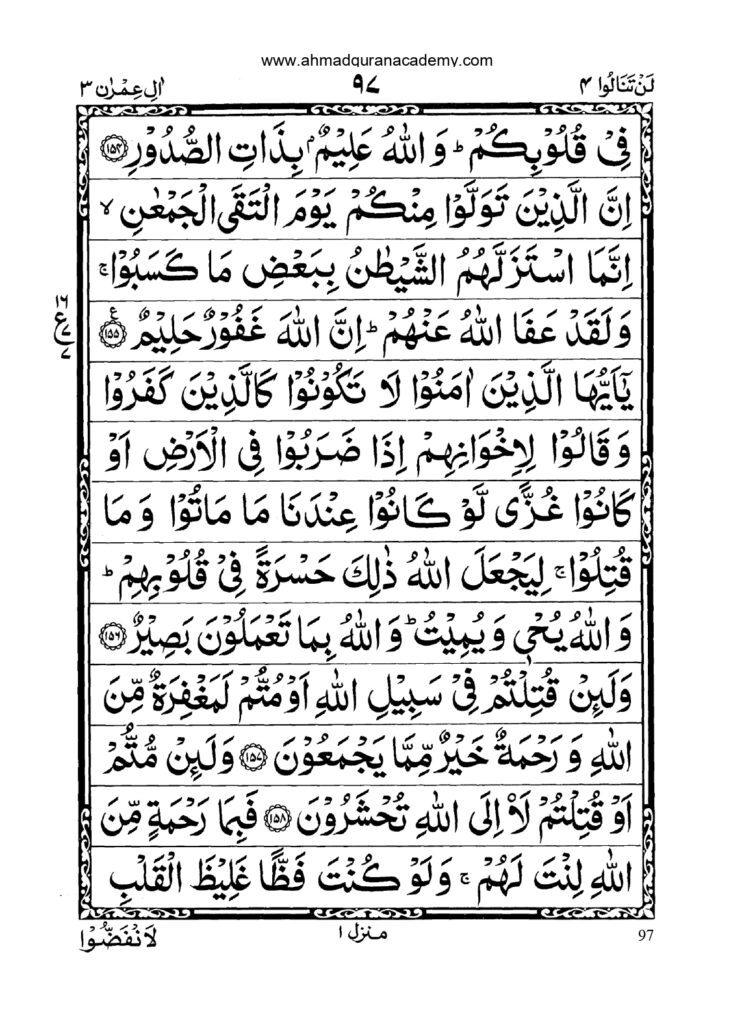 www.ahmadquranacademy.com
لَنْ تَنَالُوا ۴
۹۷
اٰلِ عِمْرٰن ۳
فِیْ قُلُوْبِكُمْ ؕ وَ اللّٰهُ عَلِیْمٌۢ بِذَاتِ الصُّدُوْرِ ۝۱۵۴
اِنَّ الَّذِیْنَ تَوَلَّوْا مِنْكُمْ یَوْمَ الْتَقَی الْجَمْعٰنِ ۙ
اِنَّمَا اسْتَزَلَّهُمُ الشَّیْطٰنُ بِبَعْضِ مَا كَسَبُوْا ۚ
وَ لَقَدْ عَفَا اللّٰهُ عَنْهُمْ ؕ اِنَّ اللّٰهَ غَفُوْرٌ حَلِیْمٌ ۝۱۵۵
۱۶
ع
۷
۷
یٰۤاَیُّهَا الَّذِیْنَ اٰمَنُوْا لَا تَكُوْنُوْا كَالَّذِیْنَ كَفَرُوْا
وَ قَالُوْا لِاِخْوَانِهِمْ اِذَا ضَرَبُوْا فِی الْاَرْضِ اَوْ
كَانُوْا غُزًّی لَّوْ كَانُوْا عِنْدَنَا مَا مَاتُوْا وَ مَا
قُتِلُوْا ۚ لِیَجْعَلَ اللّٰهُ ذٰلِكَ حَسْرَةً فِیْ قُلُوْبِهِمْ ؕ
وَ اللّٰهُ یُحْیٖ وَ یُمِیْتُ ؕ وَ اللّٰهُ بِمَا تَعْمَلُوْنَ بَصِیْرٌ ۝۱۵۶
وَلَىِٕنْ قُتِلْتُمْ فِیْ سَبِیْلِ اللّٰهِ اَوْ مُتُّمْ لَمَغْفِرَةٌ مِّنَ
اللّٰهِ وَ رَحْمَةٌ خَیْرٌ مِّمَّا یَجْمَعُوْنَ ۝۱۵۷ وَلَىِٕنْ مُّتُّمْ
اَوْ قُتِلْتُمْ لَاۡاِلَی اللّٰهِ تُحْشَرُوْنَ ۝۱۵۸ فَبِمَا رَحْمَةٍ مِّنَ
اللّٰهِ لِنْتَ لَهُمْ ۚ وَلَوْ كُنْتَ فَظًّا غَلِیْظَ الْقَلْبِ
97
منزل ۱
لَانْفَضُّوْا